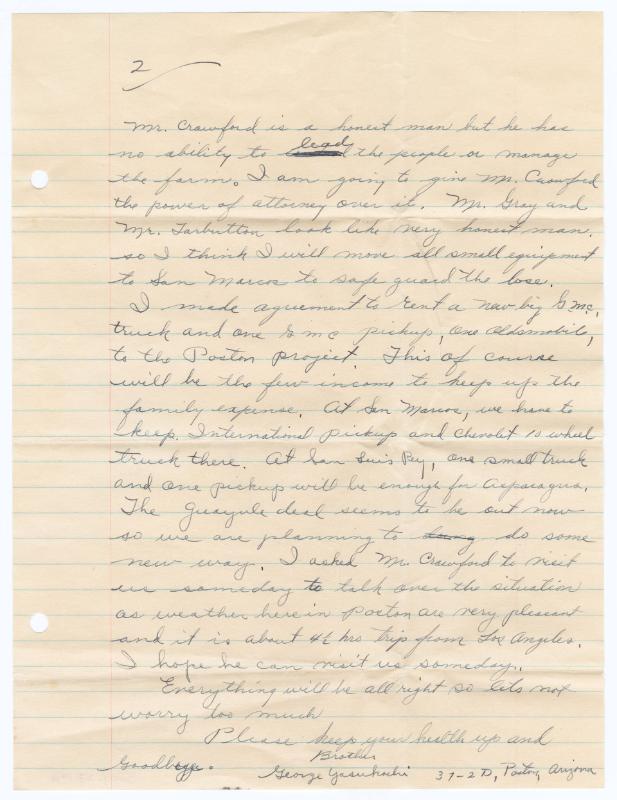 2
Mr. Crawford is a honest man but he has
no ability to lead the people or manage
the farm. I am going to give Mr. Crawford
the power of attorney over it. Mr. Gray and
Mr. Tarbutton look like very honest man.
so I think I will move all small equipment
to San Marcos to safe guard the lose.
I made agreement to rent a new big G.M.C.
truck and one G M C pickup, one Oldsmobile,
to the Poston project. This of course
will be the few income to keep up the
family expense. At San Marcos, we have to
keep International pickup and Chevrolet 10 wheel
truck there. At San Luis Rey, one small truck
and one pickup will be enough for Asparagus.
The Guayule deal seems to be out now
so we are planning to do some
new way. I asked Mr. Crawford to visit
us someday to talk over the situation
as weather here in Poston are very pleasant
and it is about 4½ hrs trip from Los Angeles.
I hope he can visit us someday.
Everything will be all right so lets not
worry too much
Please keep your health up and
Goodbye.
Brother
George Yasukochi 37-2D, Poston, Arizona